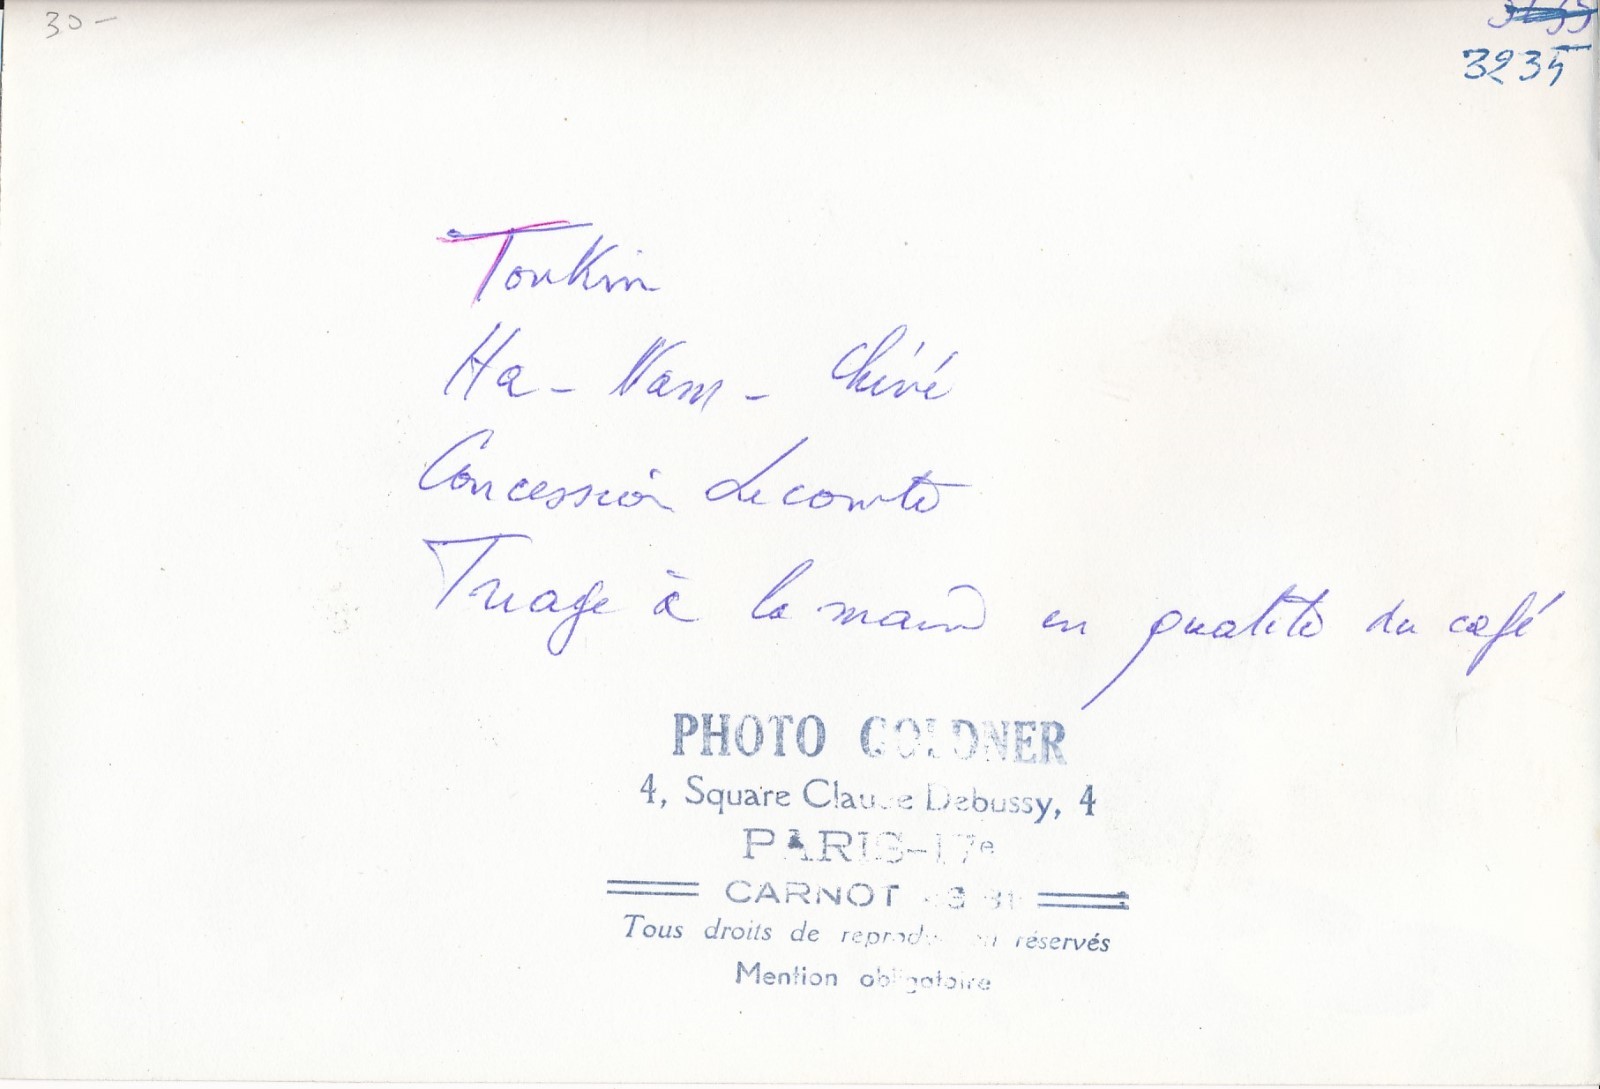 30-
3235
Tonkin
Ha - Nam - Chiné
Concession Lecomte
Triage à la main en qualité du café
PHOTO GOLDNER
4, Square Claude Debussy, 4
PARIS-17e
CARNOT
Tous droits de reproduction réservés
Mention obligatoire